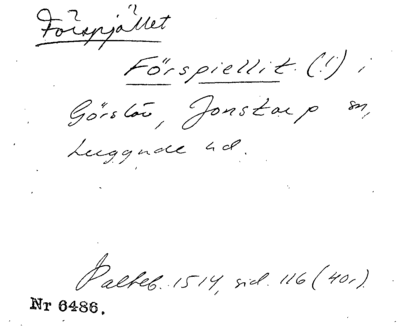 ? ?
Förspjället
Förspiellit. (!) i
Görslöv, Jonstorp sn,
Luggude hd.
Palteb. 1514, sid. 116 (40r)
Nr 6486.